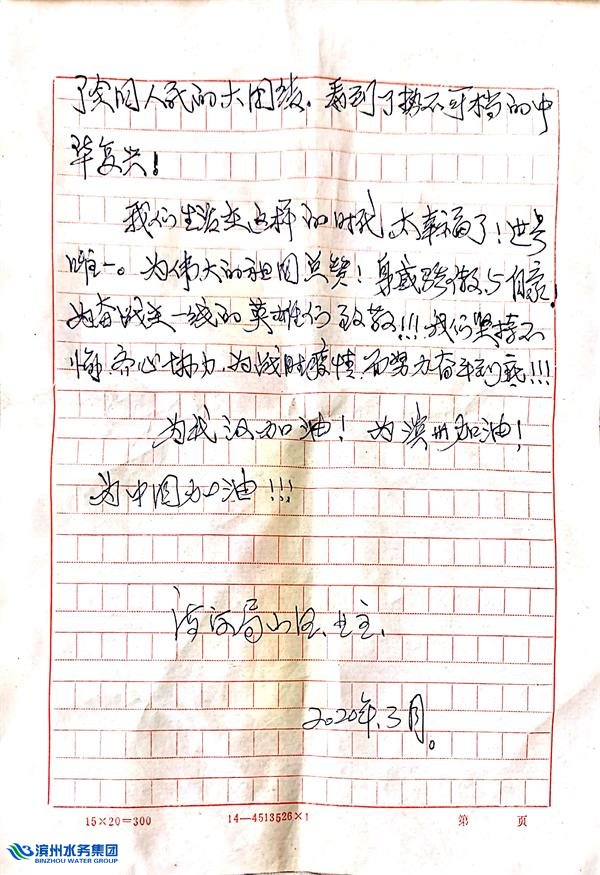 了全国人民的大团结，看到了势不可挡的中
华复兴！
我们生活在这样的时代，太幸福了！世界
唯一。为伟大的祖国点赞！身感骄傲与自豪！
为奋战在一线的英雄们致敬！！！我们坚持不
懈，齐心协力，为战胜疫情，而努力奋斗到底！！！
为武汉加油！为滨州加油！
为中国加油！！！
河局小区，业主，
2020年，3月。
15×20=300 14—4513526×1 第 页
滨州水务集团
BINZHOU WATER GROUP